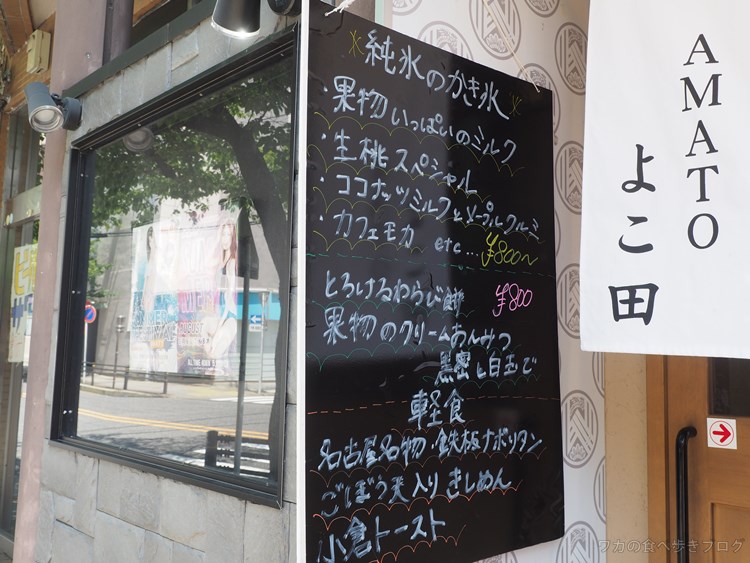 ※純氷のかき氷※
・果物いっぱいのミルク
・生桃スペシャル
・ココナッツミルクとメープルクルミ
・カフェモカ etc… ¥800〜
とろけるわらび餅 ¥800
果物のクリームあんみつ
黒蜜と白玉で
軽食
名古屋名物・鉄板ナポリタン
ごぼう天入りきしめん
小倉トースト
AMATO
よこ田
フカの食べ歩きブログ